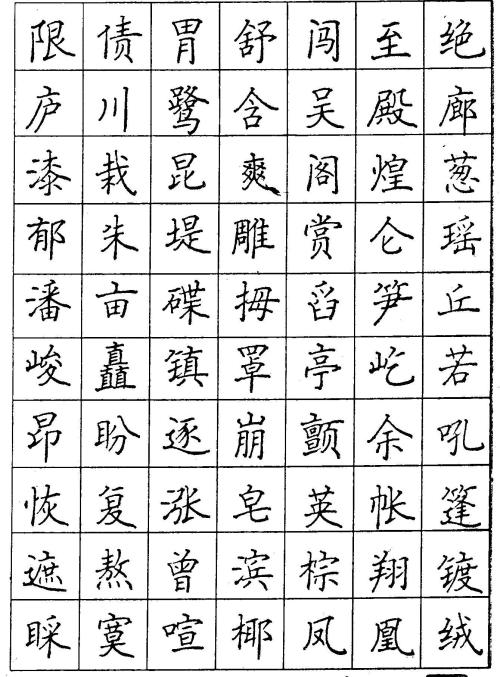 限债胃舒闯至绝
庐川鹭含吴殿廊
漆栽昆爽阁煌葱
郁朱堤雕赏仑瑶
潘亩碟拇舀笋丘
峻矗镇罩亭屹若
昂盼逐崩颤余吼
恢复涨皂英帐篷
遮熬曾滨棕翔镀
睬寞喧椰凤凰绒